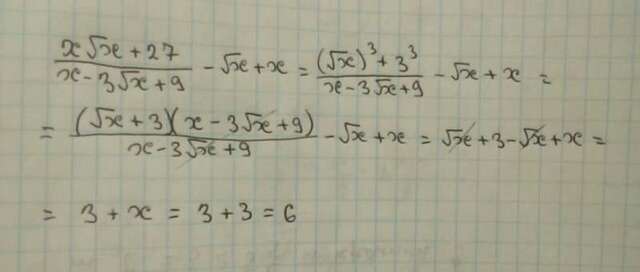 (x√x + 27)/(x - 3√x + 9) - √x + x = ((√x)³ + 3³)/(x - 3√x + 9) - √x + x =
= ((√x + 3)(x - 3√x + 9))/(x - 3√x + 9) - √x + x = √x + 3 - √x + x =
= 3 + x = 3 + 3 = 6